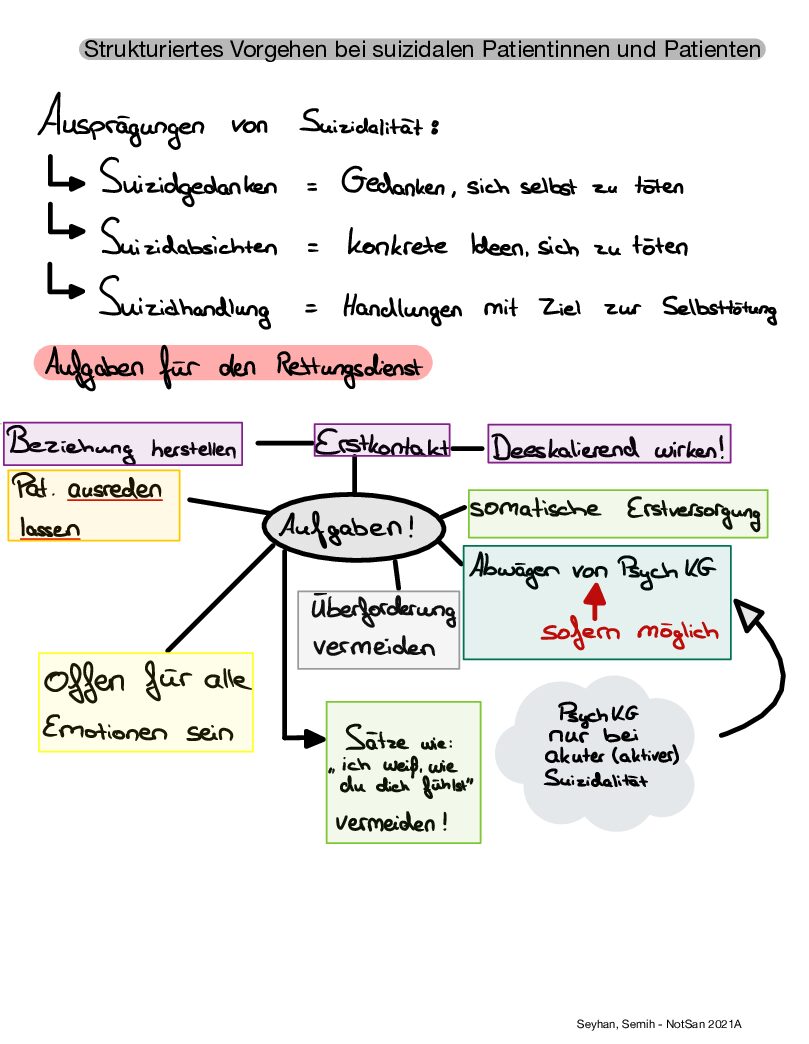 Strukturiertes Vorgehen bei suizidalen Patientinnen und Patienten
Ausprägungen von Suizidalität:
Suizidgedanken = Gedanken, sich selbst zu töten
Suizidabsichten = konkrete Ideen, sich zu töten
Suizidhandlung = Handlungen mit Ziel zur Selbsttötung
Aufgaben für den Rettungsdienst
Beziehung herstellen
Erstkontakt
Deeskalierend wirken!
Pat. ausreden
lassen
Aufgaben!
somatische Erstversorgung
Abwägen von Psych KG
sofern möglich
Überforderung
vermeiden
Offen für alle
Emotionen sein
Sätze wie:
„ich weiß, wie
du dich fühlst"
vermeiden!
Psych KG
nur bei
akuter (aktiver)
Suizidalität
Seyhan, Semih - NotSan 2021A